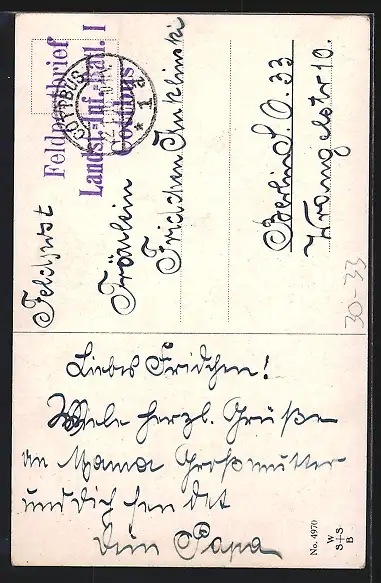 Feldpost
Feldpostbrief
Landst. Inf. Batl. I
Cottbus
COTTBUS
* 1 a
Fräulein
Fridchen
Berlin S. O. 33
Wrangelstr 10.
30-33
Liebes Fridchen!
Viele herzl. Grüße
an Mama Großmutter
und dich sendet
Dein Papa
No. 4970
W
S+S
B